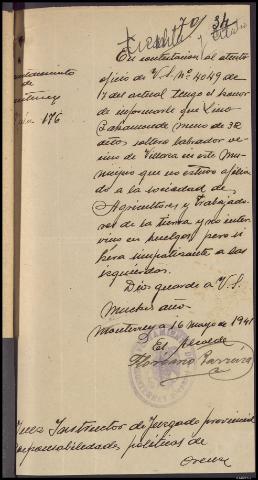 70/ 34
Ayuntamiento
de
Monterrey
176
En contestacion al atento
oficio de V.S. Nº 4049 de
17 del actual tengo el honor
de informarle que Lino
Bahamonde Mero de 32
años soltero labrador ve-
cino de Villaza en este Mu-
nicipio que no estuvo afilia-
do a la sociedad de
Agricultores y Trabajado-
res de la tierra y no inter-
vino en huelgas, pero si
hera simpatizante a las
izquierdas.
Dios guarde a V.S.
muchos años.
Monterrey a 16 mayo de 1941
El Alcalde
Floriano
Juez Instructor de Juzgado provincial
responsabilidades politicas de
Orense